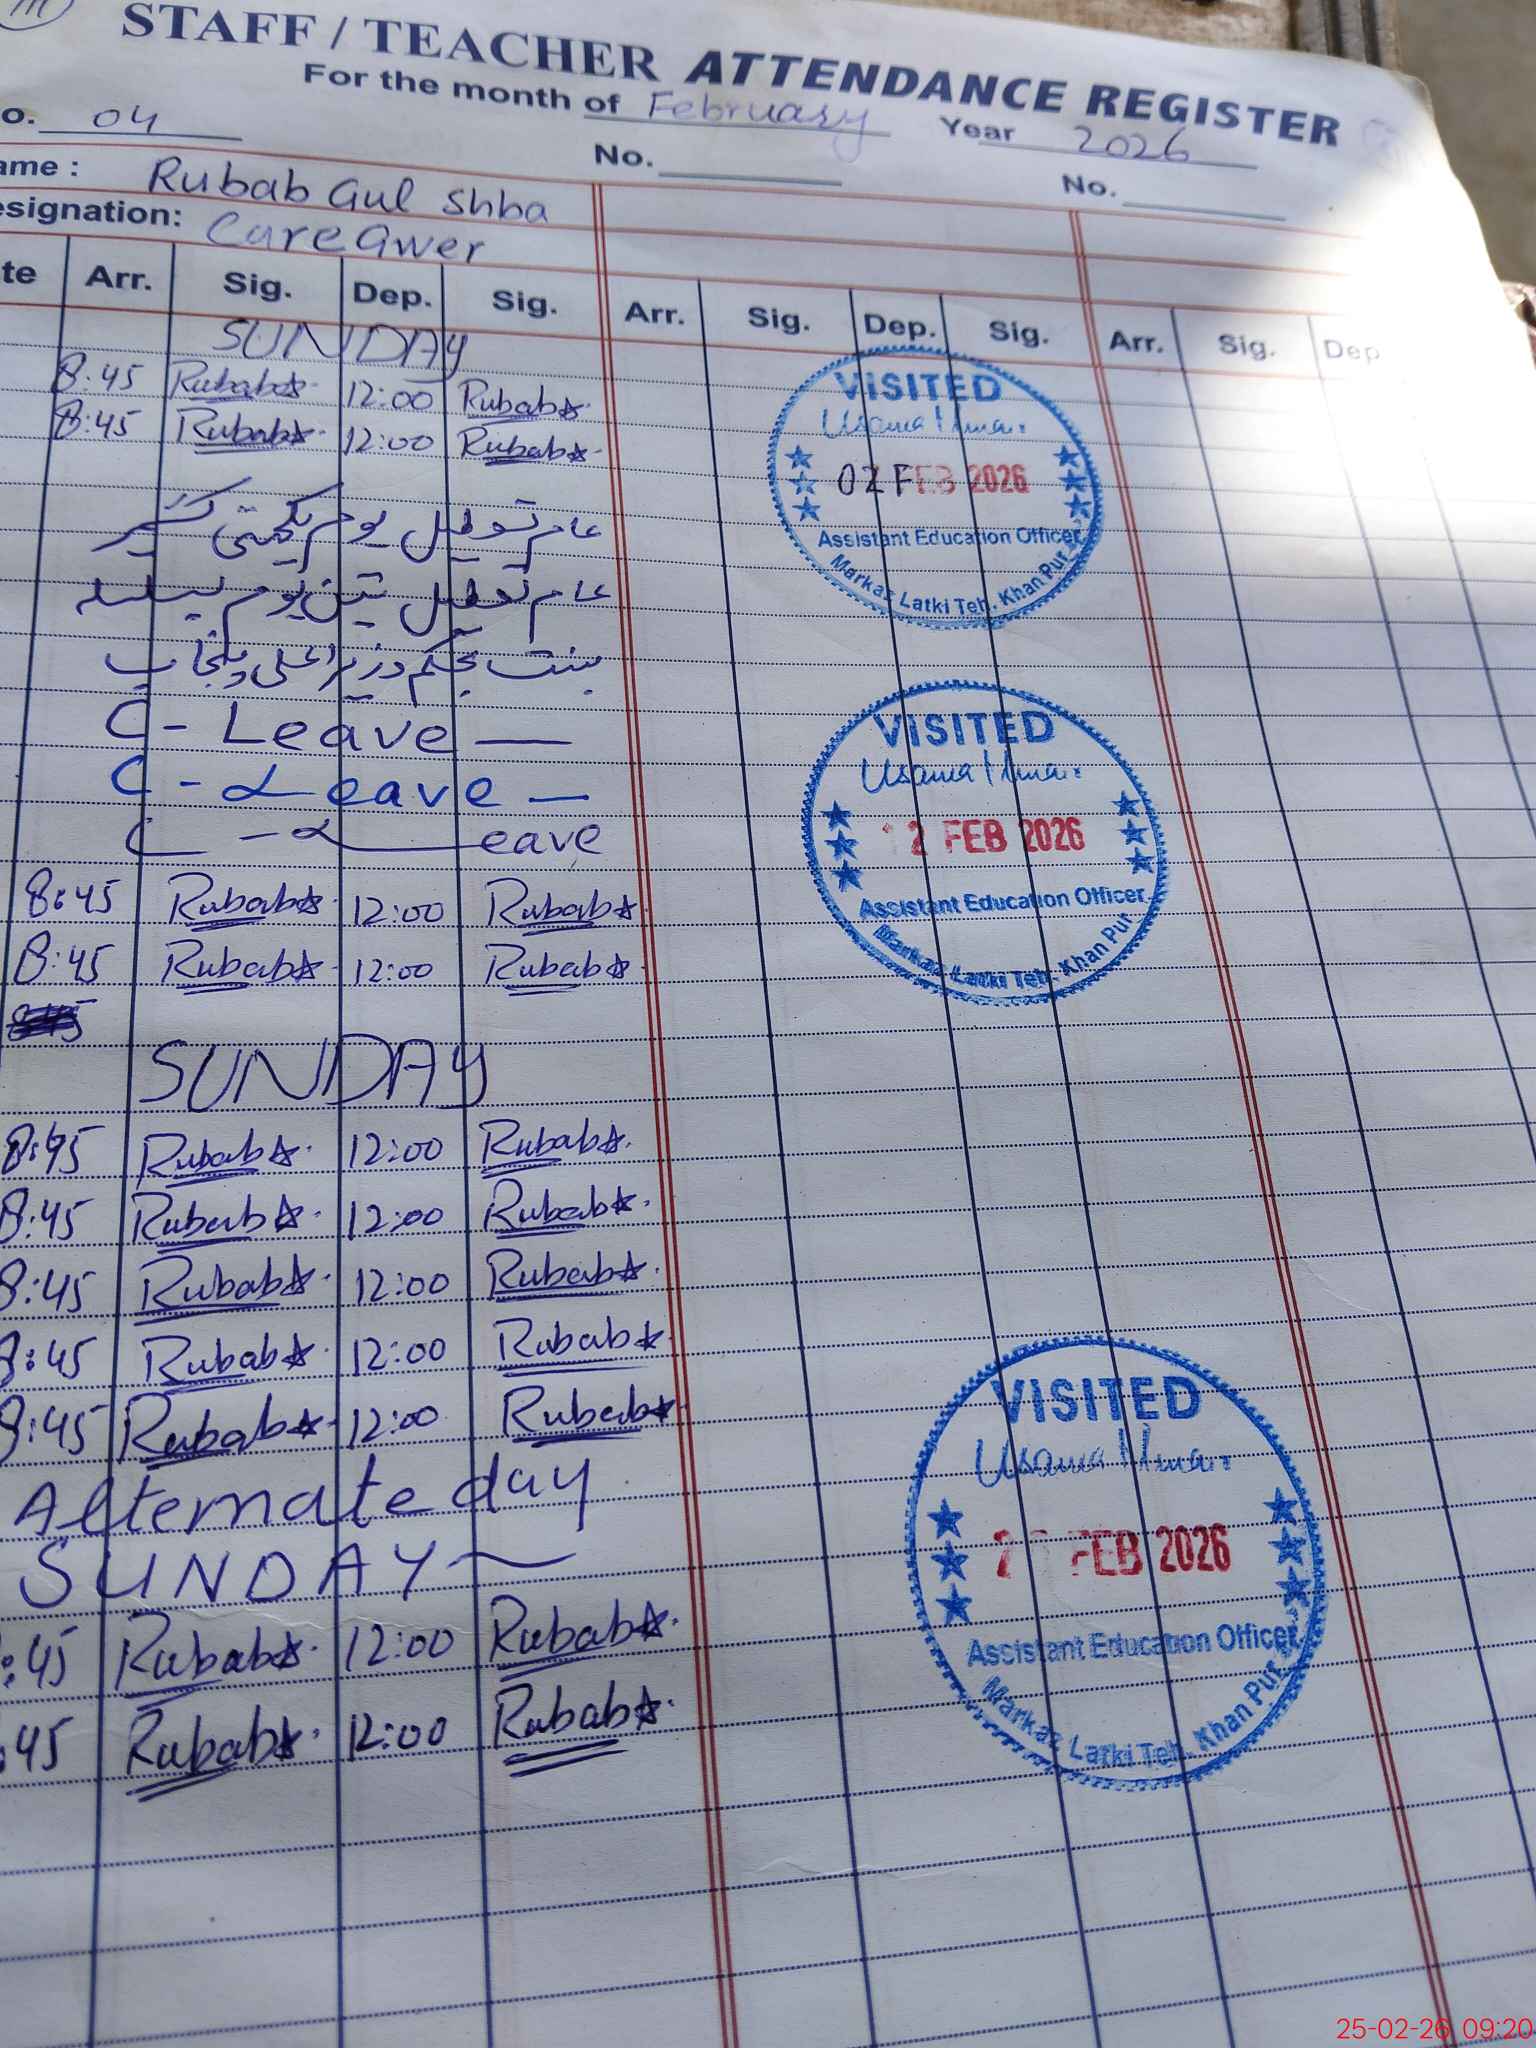 STAFF / TEACHER ATTENDANCE REGISTER
For the month of February Year 2026
o. 04 No. No.
ame : Rubab Gul Shba
esignation: CareGwer
te Arr. Sig. Dep. Sig. Arr. Sig. Dep. Sig. Arr. Sig. Dep
SUNDAY
8:45 Rubab 12:00 Rubab
8:45 Rubab 12:00 Rubab
عام تعطیل یوم یکجہتی کشمیر
عام تعطیل تین یوم بسلسلہ
بسنت بحکم وزیراعلی پنجاب
C - Leave —
C - Leave —
C - Leave
8:45 Rubab 12:00 Rubab
8:45 Rubab 12:00 Rubab
SUNDAY
8:45 Rubab 12:00 Rubab
8:45 Rubab 12:00 Rubab
8:45 Rubab 12:00 Rubab
8:45 Rubab 12:00 Rubab
8:45 Rubab 12:00 Rubab
Alternate day
SUNDAY
:45 Rubab 12:00 Rubab
:45 Rubab 12:00 Rubab
VISITED
02 FEB 2026
Assistant Education Officer
Markaz Latki Teh. Khan Pur
VISITED
12 FEB 2026
Assistant Education Officer
Markaz Latki Teh. Khan Pur
VISITED
FEB 2026
Assistant Education Officer
Markaz Latki Teh. Khan Pur
25-02-26 09:20